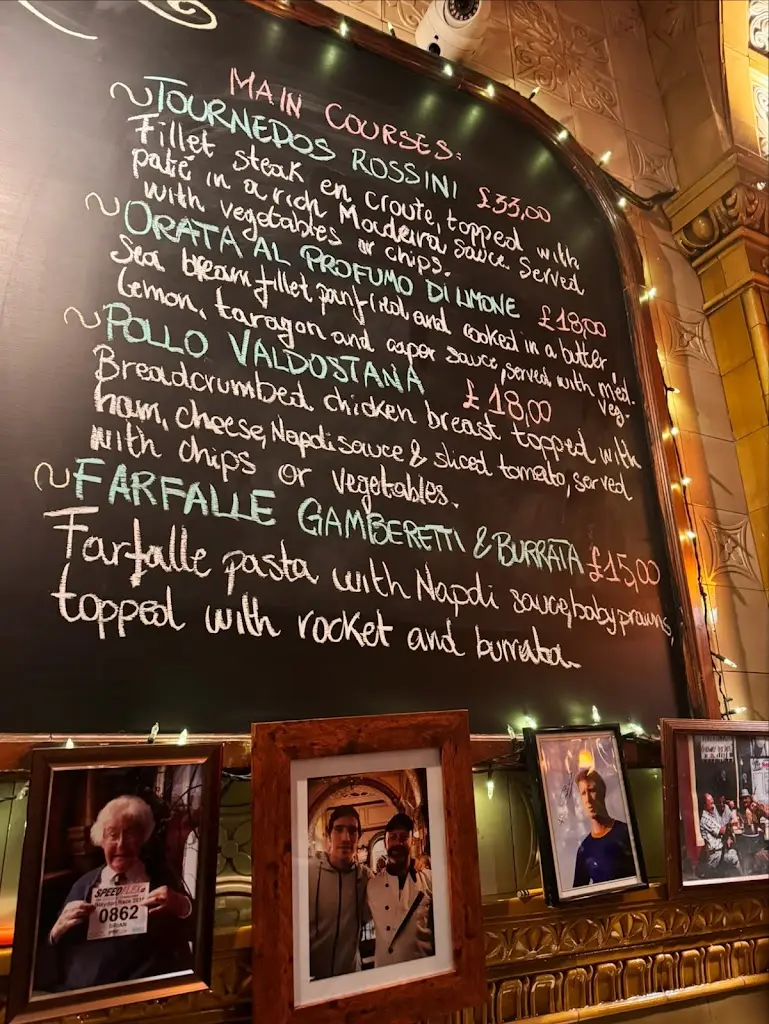 MAIN COURSES:
~TOURNEDOS ROSSINI £33,00
Fillet steak en croute, topped with
paté in a rich Madeira sauce served
with vegetables or chips.
~ORATA AL PROFUMO DI LIMONE £18,00
Sea bream fillet panfried and cooked in a butter,
lemon, taragon and caper sauce, served with med.
veg.
~POLLO VALDOSTANA £18,00
Breadcrumbed chicken breast topped with
ham, cheese, Napoli sauce & sliced tomato, served
with chips or vegetables.
~FARFALLE GAMBERETTI & BURRATA £15,00
Farfalle pasta with Napoli sauce, baby prawns,
topped with rocket and burrata.
SPEEDFLEX
0862
BRIAN